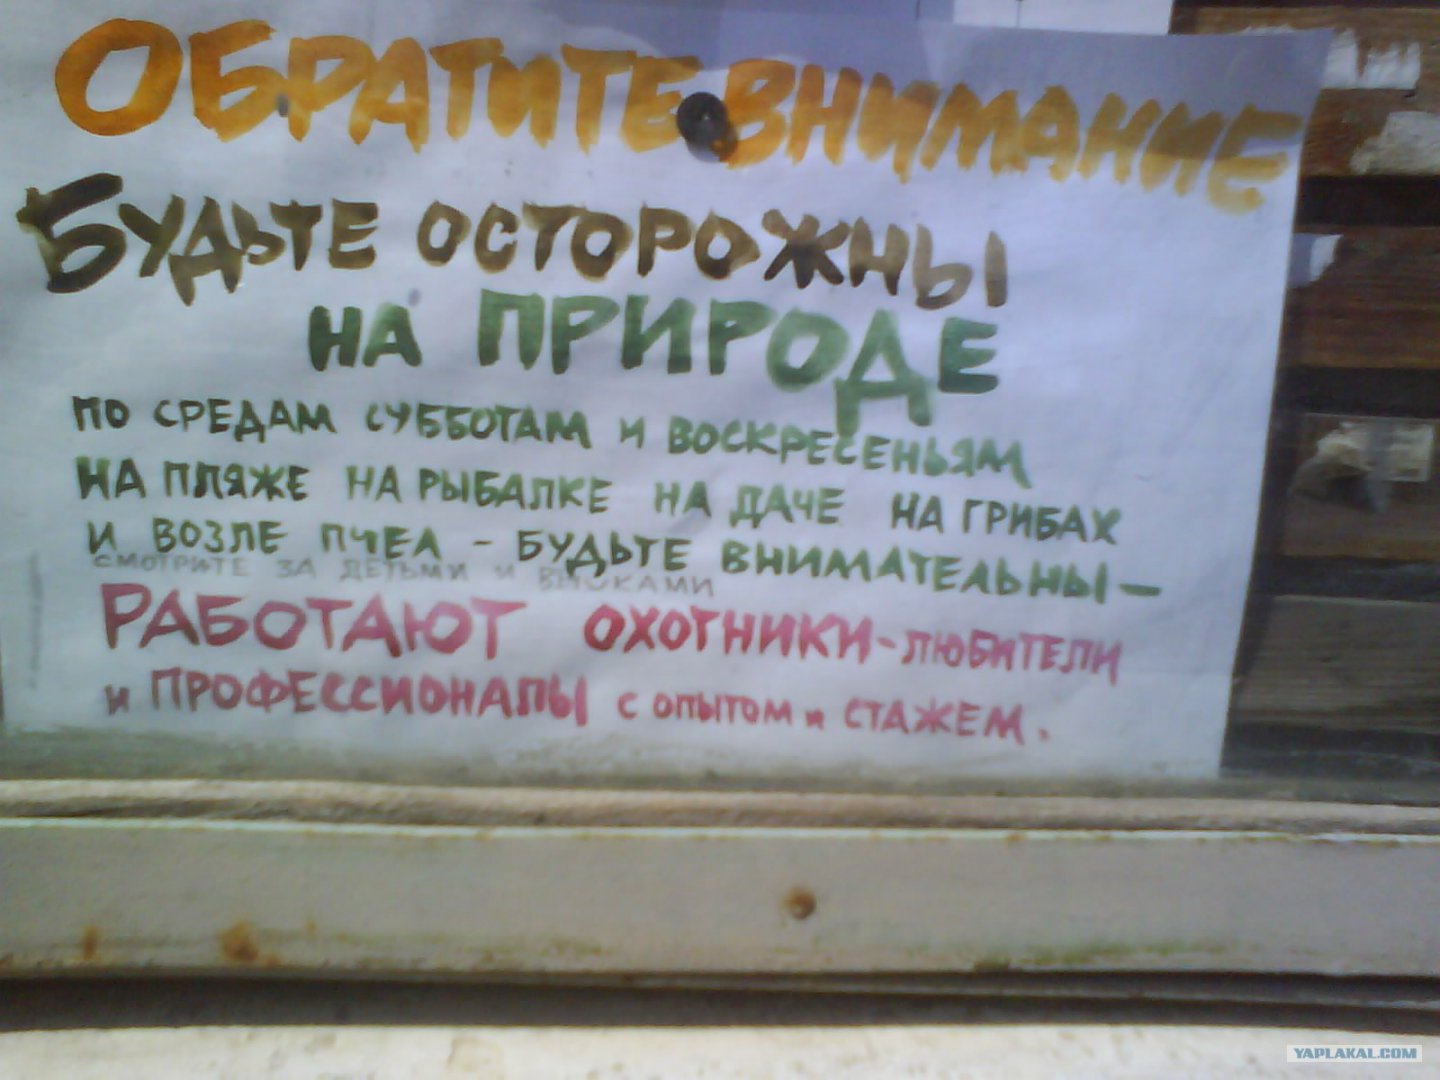 ОБРАТИТЕ ВНИМАНИЕ
БУДЬТЕ ОСТОРОЖНЫ
НА ПРИРОДЕ
ПО СРЕДАМ СУББОТАМ И ВОСКРЕСЕНЬЯМ
НА ПЛЯЖЕ НА РЫБАЛКЕ НА ДАЧЕ НА ГРИБАХ
И ВОЗЛЕ ПЧЕЛ - БУДЬТЕ ВНИМАТЕЛЬНЫ -
СМОТРИТЕ ЗА ДЕТЬМИ И ВНУКАМИ
РАБОТАЮТ ОХОТНИКИ-ЛЮБИТЕЛИ
И ПРОФЕССИОНАЛЫ С ОПЫТОМ И СТАЖЕМ.
YAPLAKAL.COM